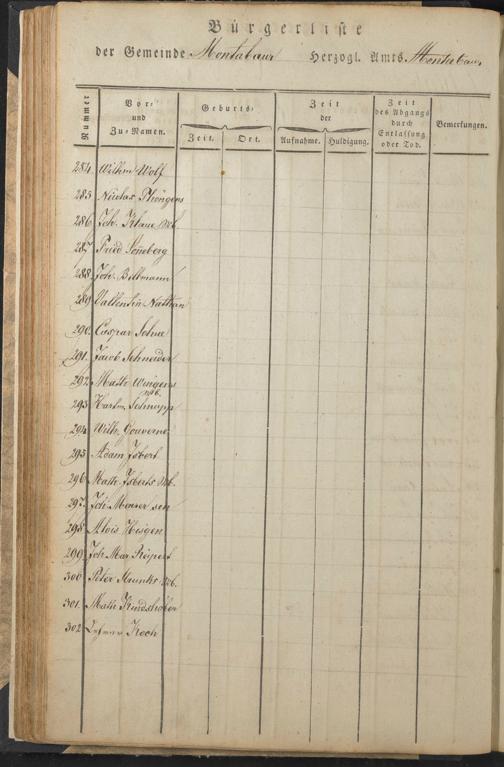 Bürgerliste
der Gemeinde Montabaur Herzogl. Amts Montabaur
Nummer
Vor- und Zu-Namen.
Geburts-
Zeit. Ort.
Zeit der
Aufnahme. Huldigung.
Zeit des Abgangs durch Entlassung oder Tod.
Bemerkungen.
284. Wilhm Wolf
285 Nicolas
286 Joh. Wtb.
287 Fried Söneberg
288. Joh. Bettmann
289 Vallentin Nathan
290. Caspar
291. Jacob Schneider
292 Math Wingens
Wtb.
293 Hartm. Schnupp
294 Wilh. Gouverne
295 Adam Isbert
296 Math. Isberts Wtb.
297. Joh Maurer sen
298. Alois Hisgen
299 Joh Mar Rüpert
300 Peter Wtb.
301. Math Kindshofer
302 Koch